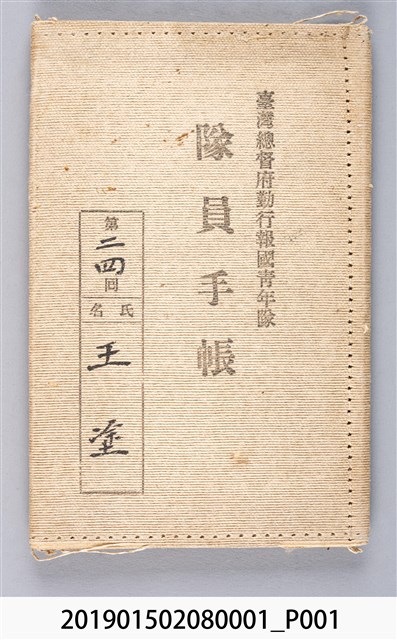 臺灣總督府勤行報國青年隊
隊員手帳
第二四回
氏名
王塗
201901502080001_P001